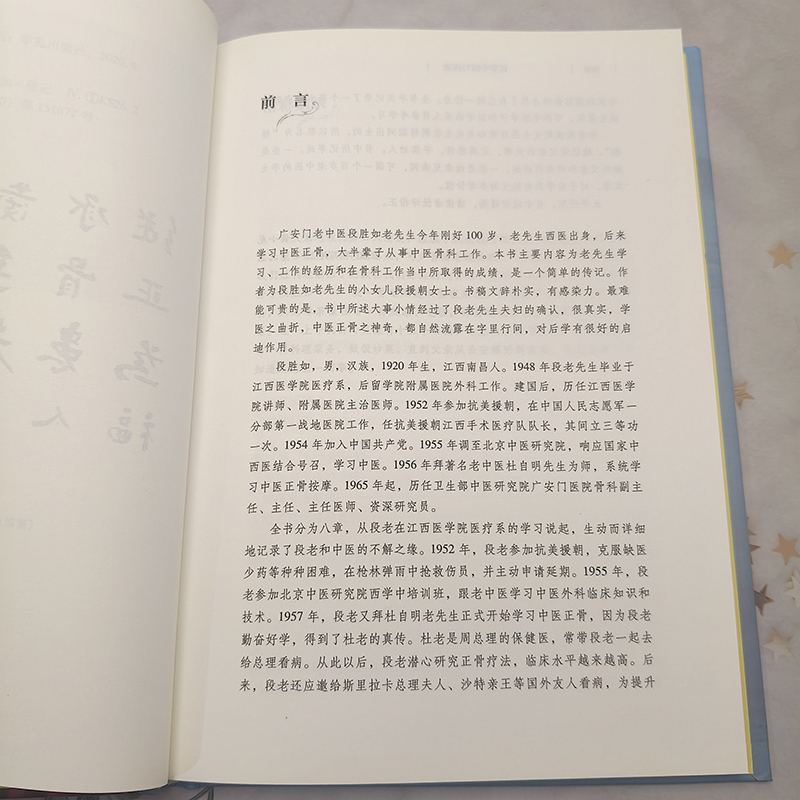 前言
广安门老中医段胜如老先生今年刚好 100 岁，老先生西医出身，后来
学习中医正骨，大半辈子从事中医骨科工作。本书主要内容为老先生学
习、工作的经历和在骨科工作当中所取得的成绩，是一个简单的传记。作
者为段胜如老先生的小女儿段援朝女士。书稿文辞朴实，有感染力。最难
能可贵的是，书中所述大事小情经过了段老先生夫妇的确认，很真实，学
医之曲折，中医正骨之神奇，都自然流露在字里行间，对后学有很好的启
迪作用。
段胜如，男，汉族，1920 年生，江西南昌人。1948 年段老先生毕业于
江西医学院医疗系，后留学院附属医院外科工作。建国后，历任江西医学
院讲师、附属医院主治医师。1952 年参加抗美援朝，在中国人民志愿军一
分部第一战地医院工作，任抗美援朝江西手术医疗队队长，其间立三等功
一次。1954 年加入中国共产党。1955 年调至北京中医研究院，响应国家中
西医结合号召，学习中医。1956 年拜著名老中医杜自明先生为师，系统学
习中医正骨按摩。1965 年起，历任卫生部中医研究院广安门医院骨科副主
任、主任、主任医师、资深研究员。
全书分为八章，从段老在江西医学院医疗系的学习说起，生动而详细
地记录了段老和中医的不解之缘。1952 年，段老参加抗美援朝，克服缺医
少药等种种困难，在枪林弹雨中抢救伤员，并主动申请延期。1955 年，段
老参加北京中医研究院西学中培训班，跟老中医学习中医外科临床知识和
技术。1957 年，段老又拜杜自明老先生正式开始学习中医正骨，因为段老
勤奋好学，得到了杜老的真传。杜老是周总理的保健医，常带段老一起去
给总理看病。从此以后，段老潜心研究正骨疗法，临床水平越来越高。后
来，段老还应邀给斯里拉卡总理夫人、沙特亲王等国外友人看病，为提升